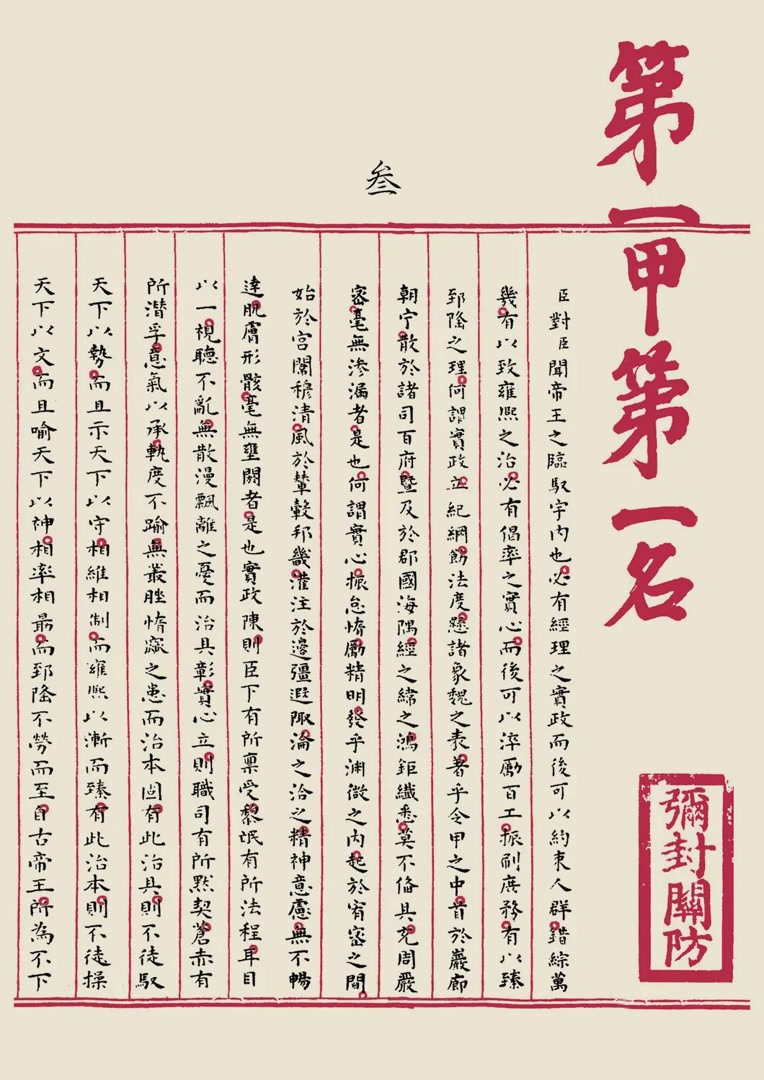 第一甲第一名
彌封關防
叁
臣對臣聞帝王之臨馭宇內也必有經理之實政而後可以約束人群錯綜萬
幾有以致雍熙之治必有倡率之實心而後可以淬勵百工振刷庶務有以臻
郅隆之理何謂實政立紀綱飭法度懸諸象魏之表著乎令甲之中首於巖廊
朝宁散於諸司百府暨及於郡國海隅經之緯之鴻鉅纖悉莫不備具充周嚴
密毫無滲漏者是也何謂實心振怠惰勵精明發乎淵微之內起於宥密之間
始於宮闈穆清風於輦轂邦畿灌注於邊疆遐陬淪之洽之精神意慮無不暢
達肌膚形骸毫無壅閼者是也實政陳則臣下有所禀受黎氓有所法程耳目
以一視聽不亂無散漫飄離之憂而治具彰實心立則職司有所默契蒼赤有
所潛孚意氣以承軌度不踰無叢脞惰窳之患而治本固有此治具則不徒馭
天下以勢而且示天下以守相維相制而雍熙以漸而臻有此治本則不徒操
天下以文而且喻天下以神相率相勗而郅隆不勞而至自古帝王所為不下